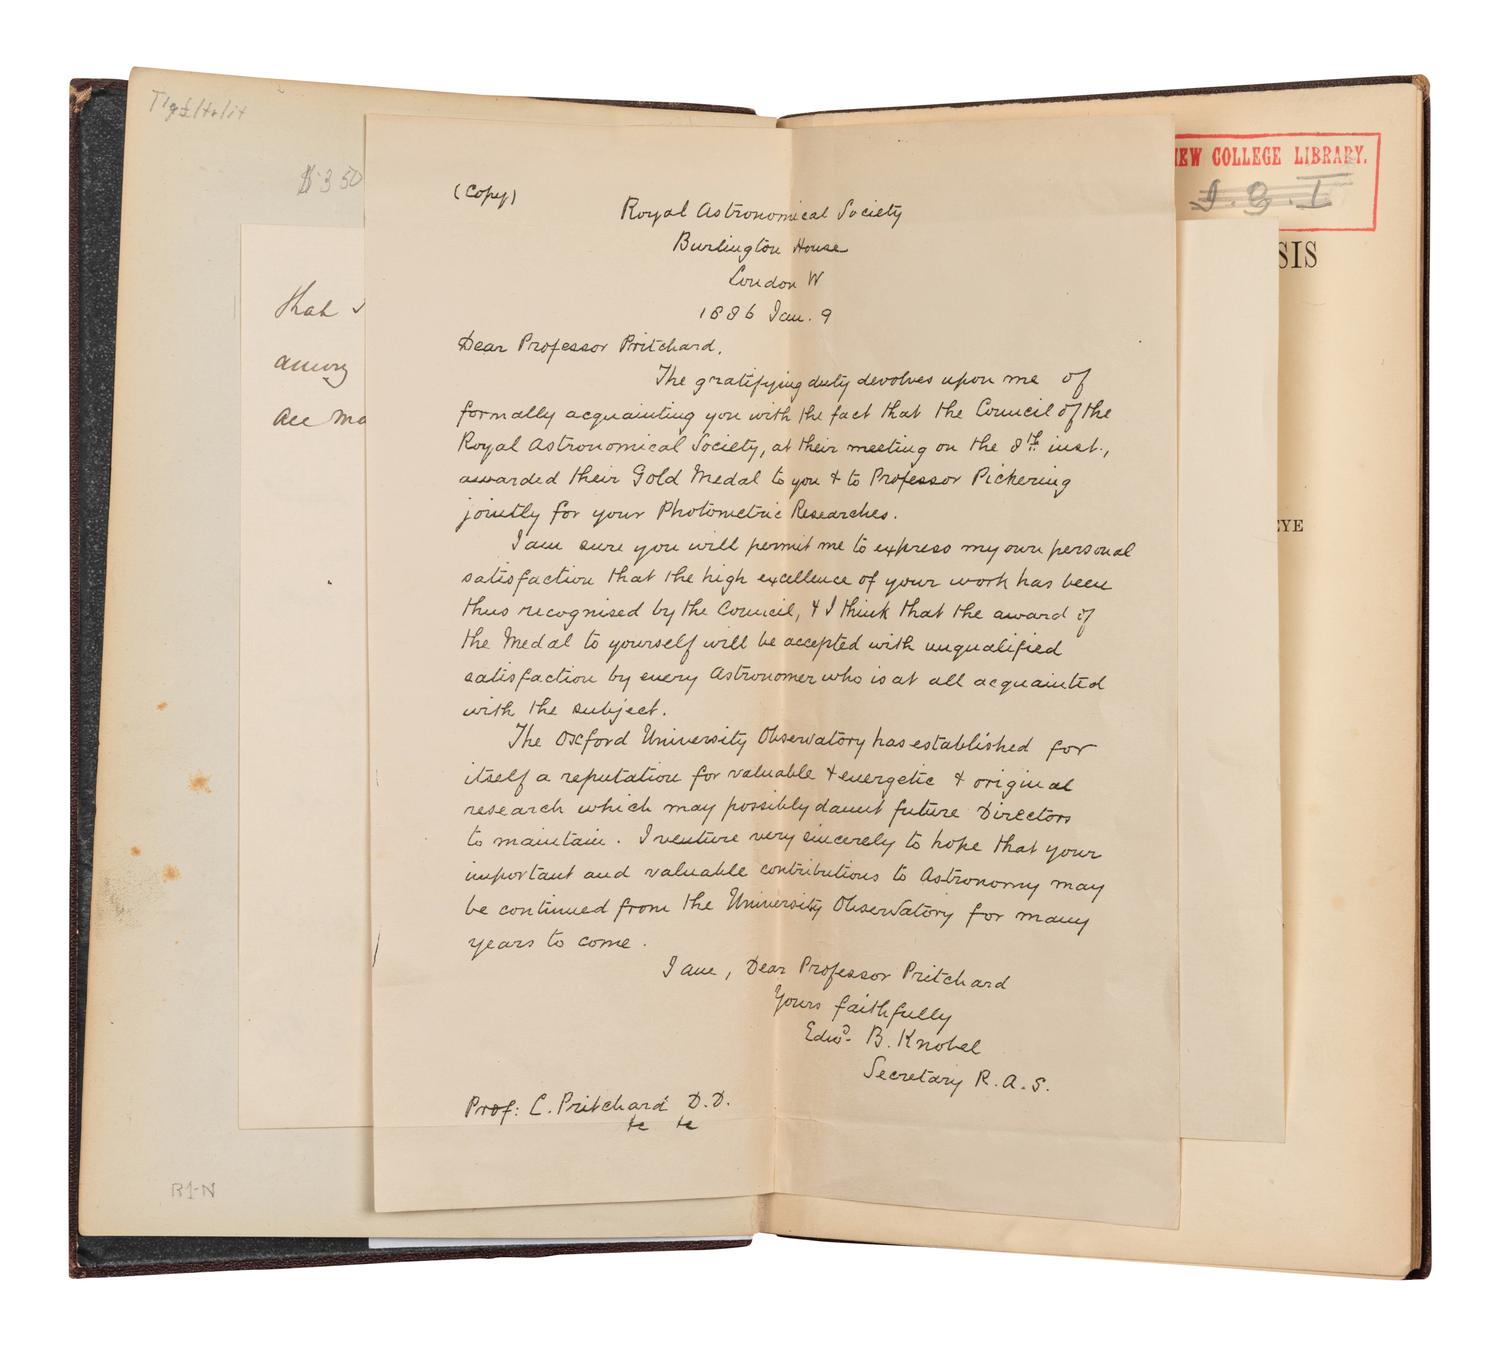 $350
that
among
all
(Copy)
Royal Astronomical Society
Burlington House
London W
1886 Jan. 9
Dear Professor Pritchard,
The gratifying duty devolves upon me of
formally acquainting you with the fact that the Council of the
Royal Astronomical Society, at their meeting on the 8th inst.,
awarded their Gold Medal to you & to Professor Pickering
jointly for your Photometric Researches.
I am sure you will permit me to express my own personal
satisfaction that the high excellence of your work has been
thus recognised by the Council, & I think that the award of
the Medal to yourself will be accepted with unqualified
satisfaction by every Astronomer who is at all acquainted
with the subject.
The Oxford University Observatory has established for
itself a reputation for valuable & energetic & original
research which may possibly daunt future Directors
to maintain. I venture very sincerely to hope that your
important and valuable contributions to Astronomy may
be continued from the University Observatory for many
years to come.
I am, Dear Professor Pritchard
Yours faithfully
Edwd. B. Knobel
Secretary R.A.S.
Prof: C. Pritchard D.D.
&c &c
B1-N
NEW COLLEGE LIBRARY.
SIS
EYE